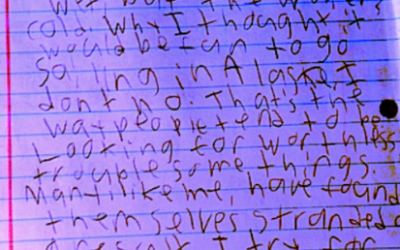 wet but the water is
cold. Why I thought it
would be fun to go
Sailing in Alaska I
dont no. That's the
way people tend to be
Looking for worthless
trouble some things.
Many like me, have found
themselves stranded